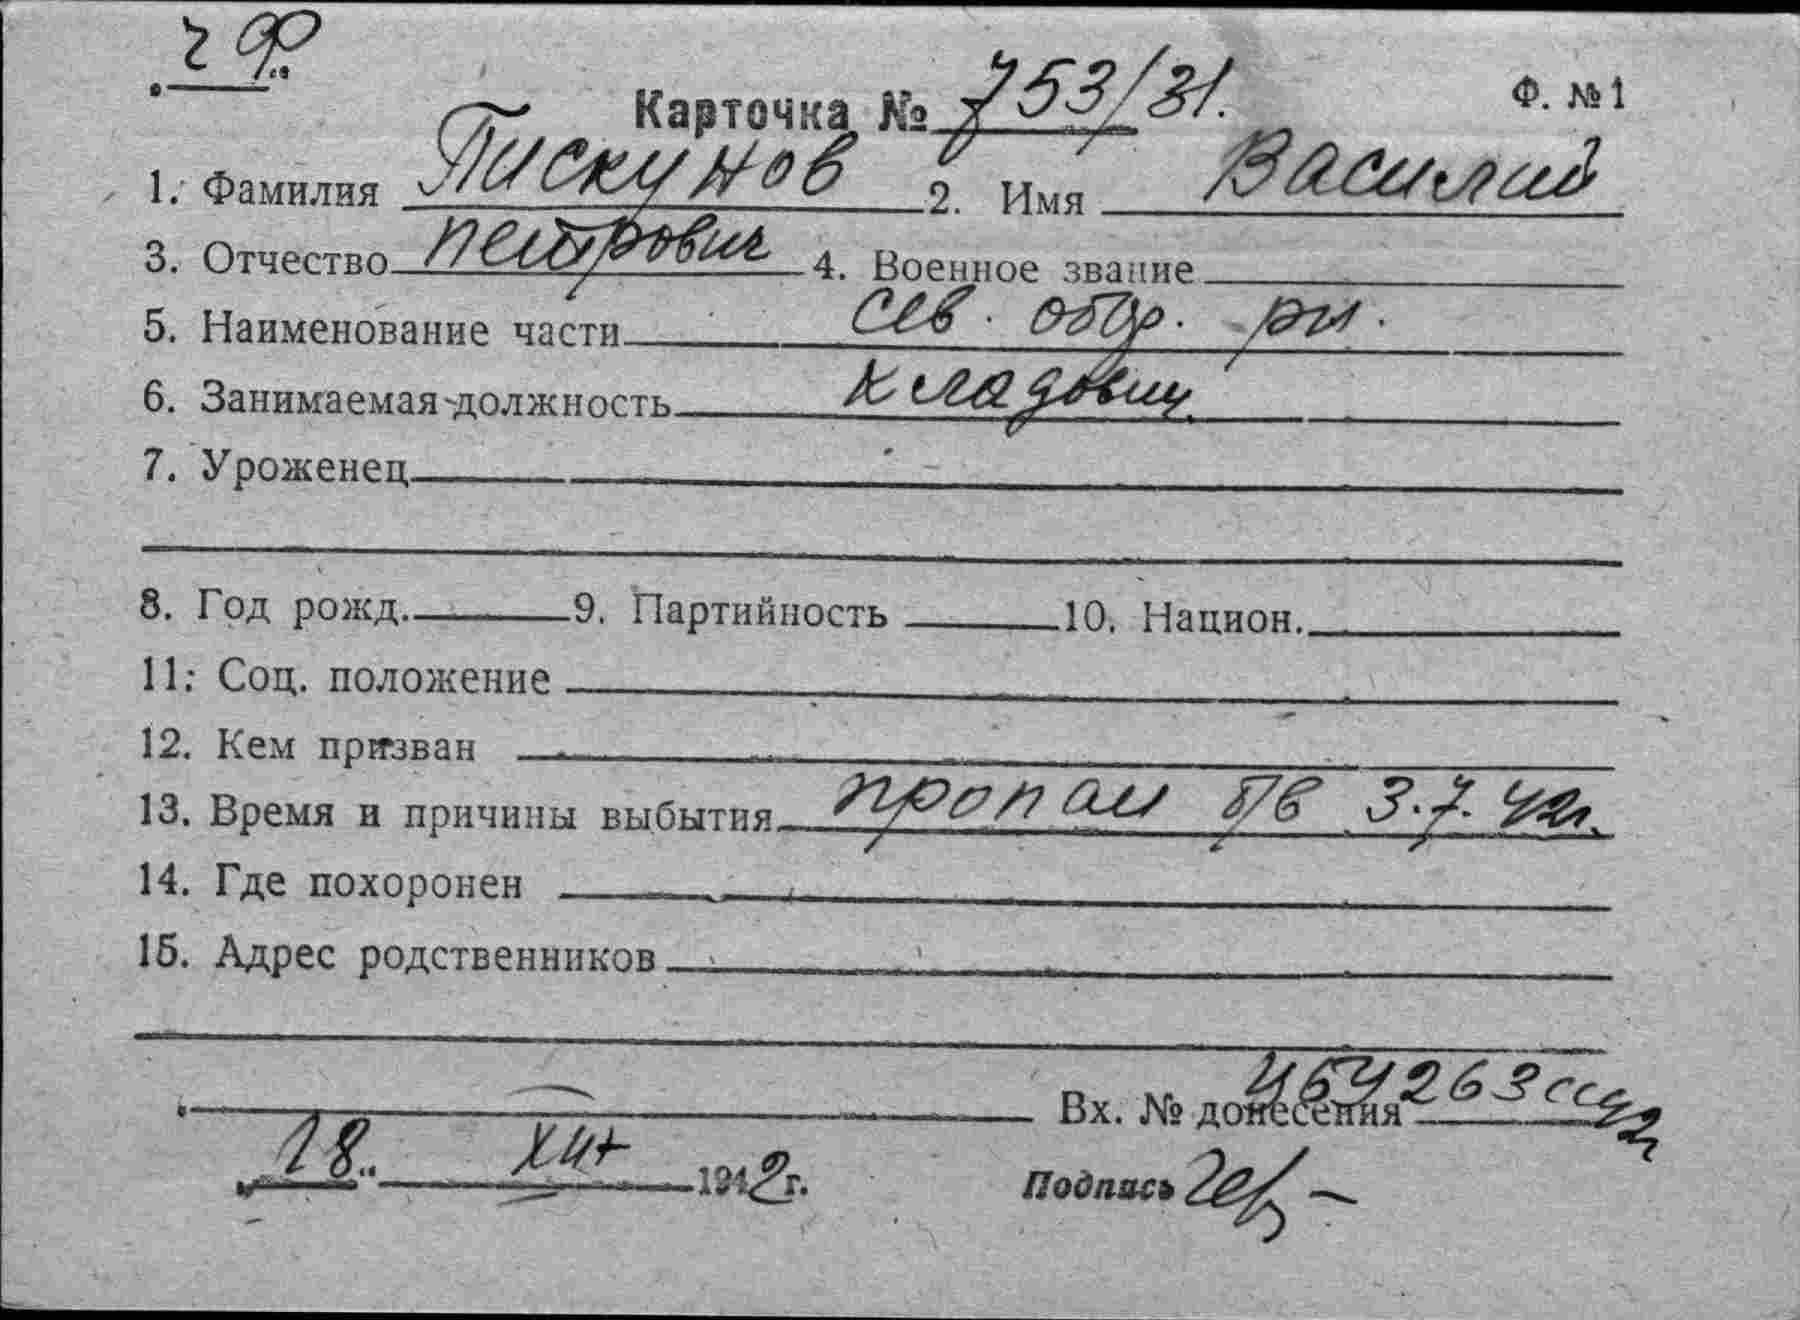 ЧФ
Карточка № 753/31.
Ф. № 1
1. Фамилия Пискунов 2. Имя Василий
3. Отчество Петрович 4. Военное звание
5. Наименование части Сев. обор.
6. Занимаемая должность кладовщ.
7. Уроженец
8. Год рожд. 9. Партийность 10. Национ.
11. Соц. положение
12. Кем призван
13. Время и причины выбытия пропал б/в 3.7.42г.
14. Где похоронен
15. Адрес родственников
Вх. № донесения
18 XII 1942 г.
Подпись